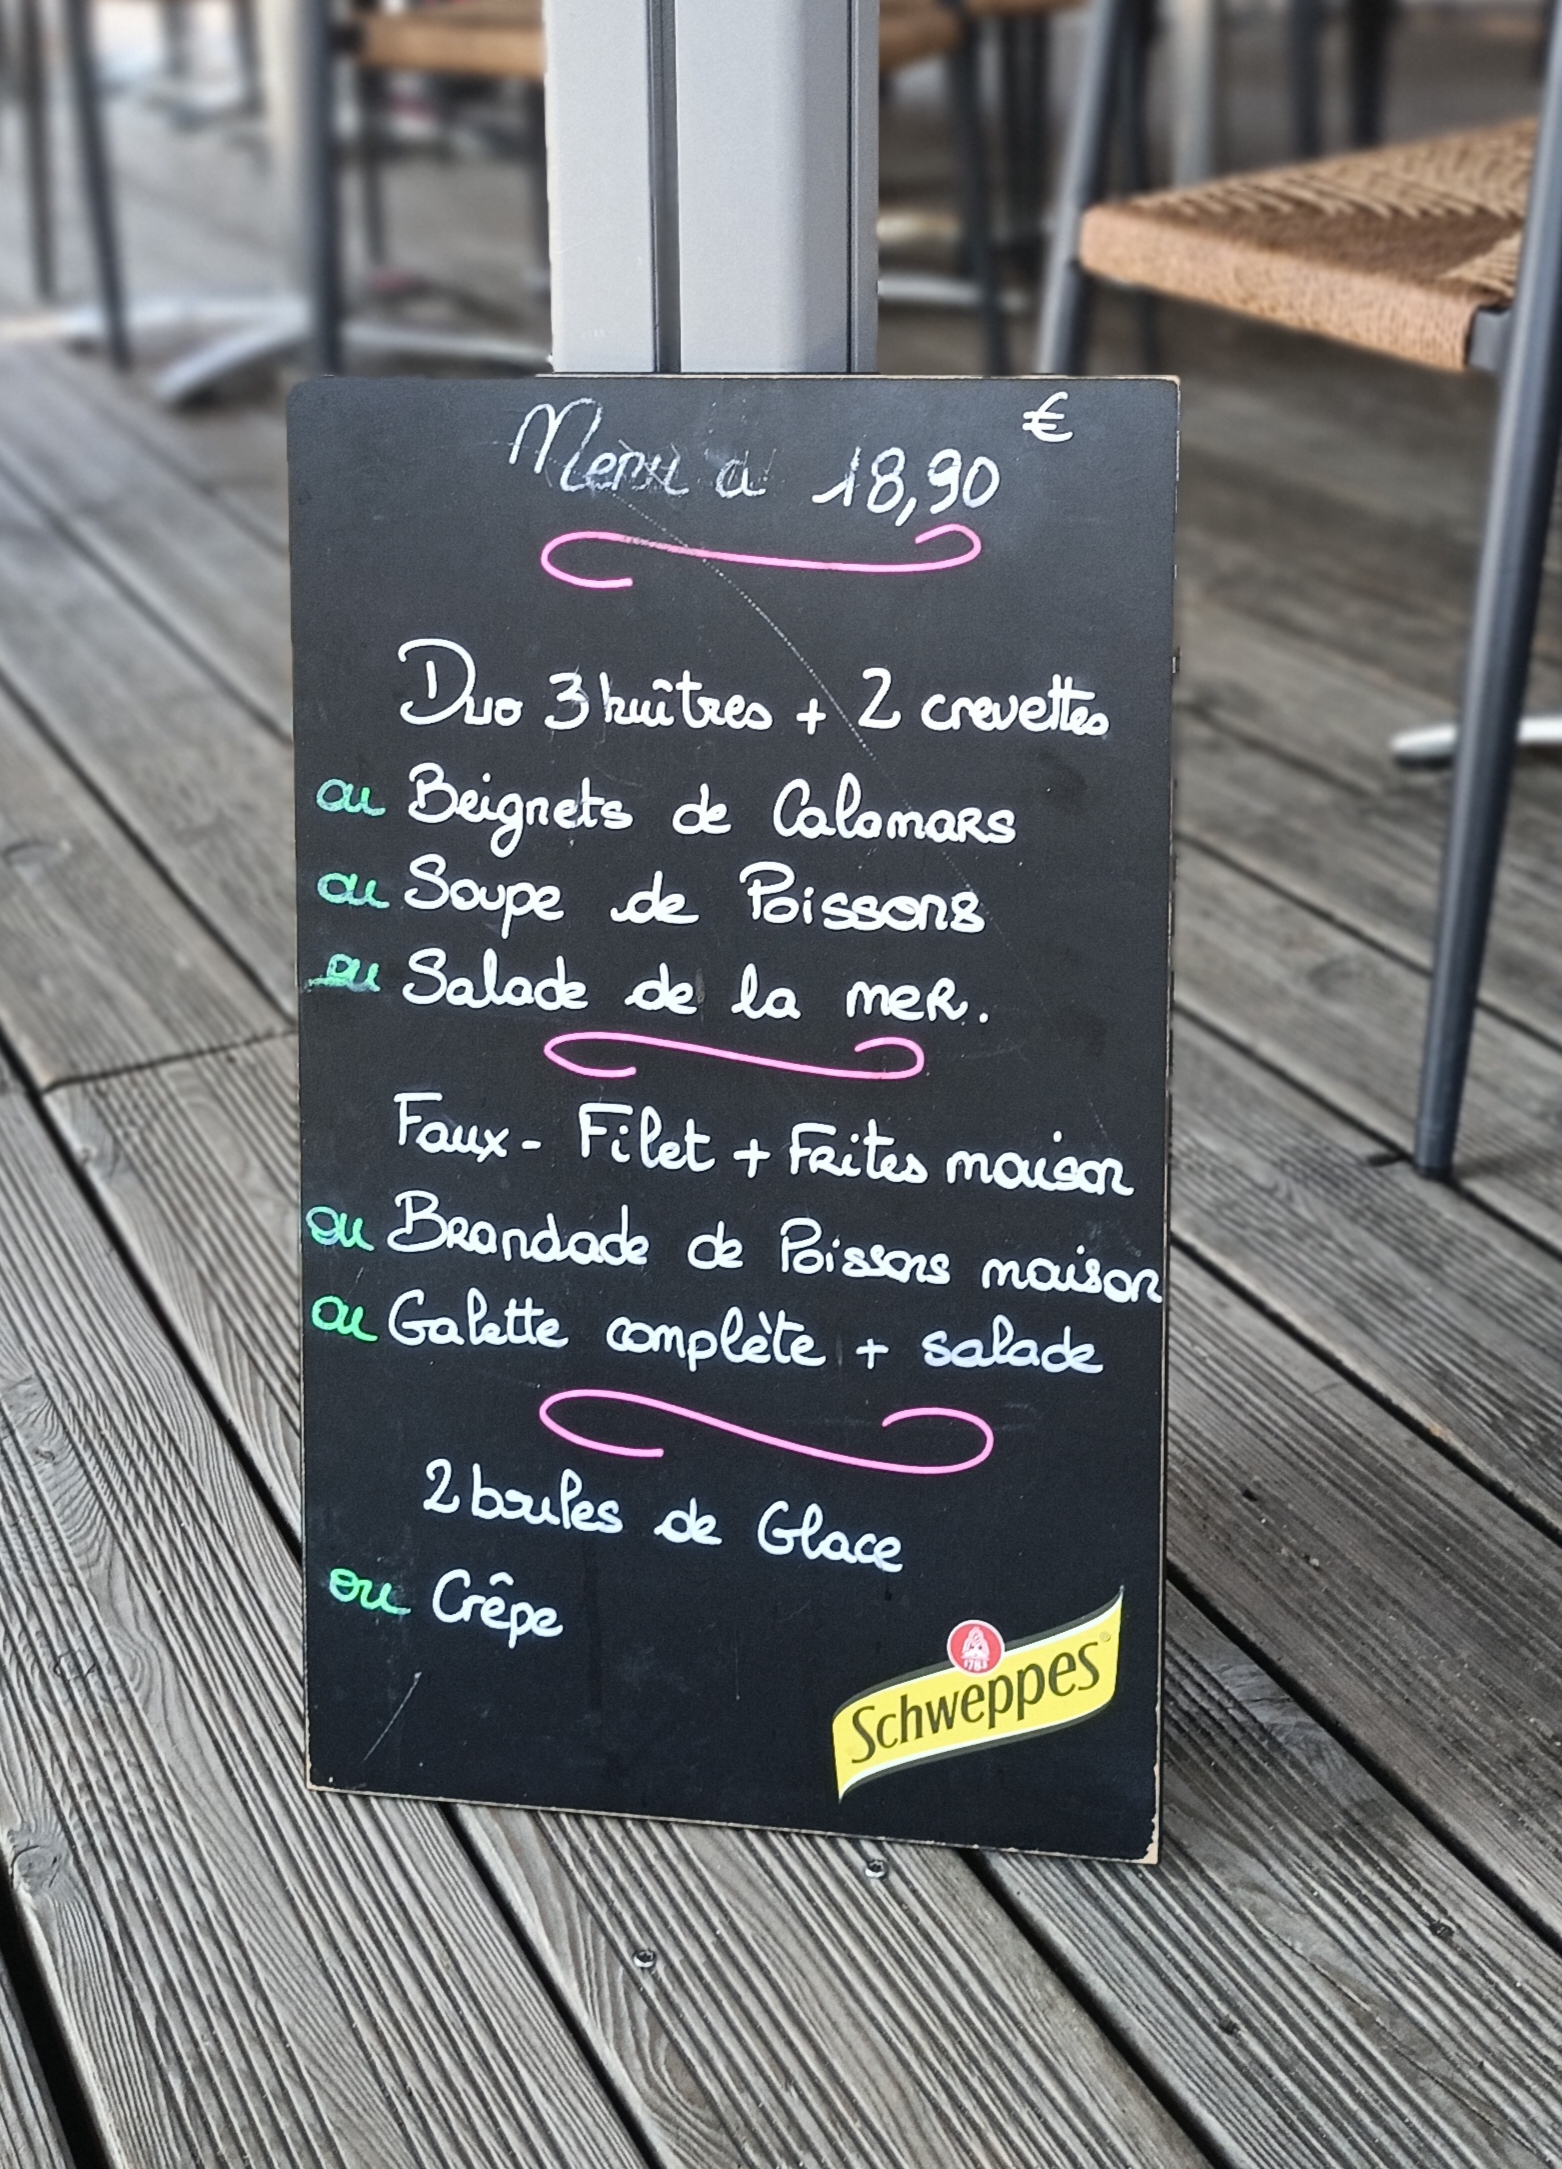 Menu a 18,90 €
Duo 3 huîtres + 2 crevettes
ou Beignets de Calamars
ou Soupe de Poissons
ou Salade de la mer.
Faux-Filet + Frites maison
ou Brandade de Poissons maison
ou Galette complète + salade
2 boules de Glace
ou Crêpe
1783
Schweppes®